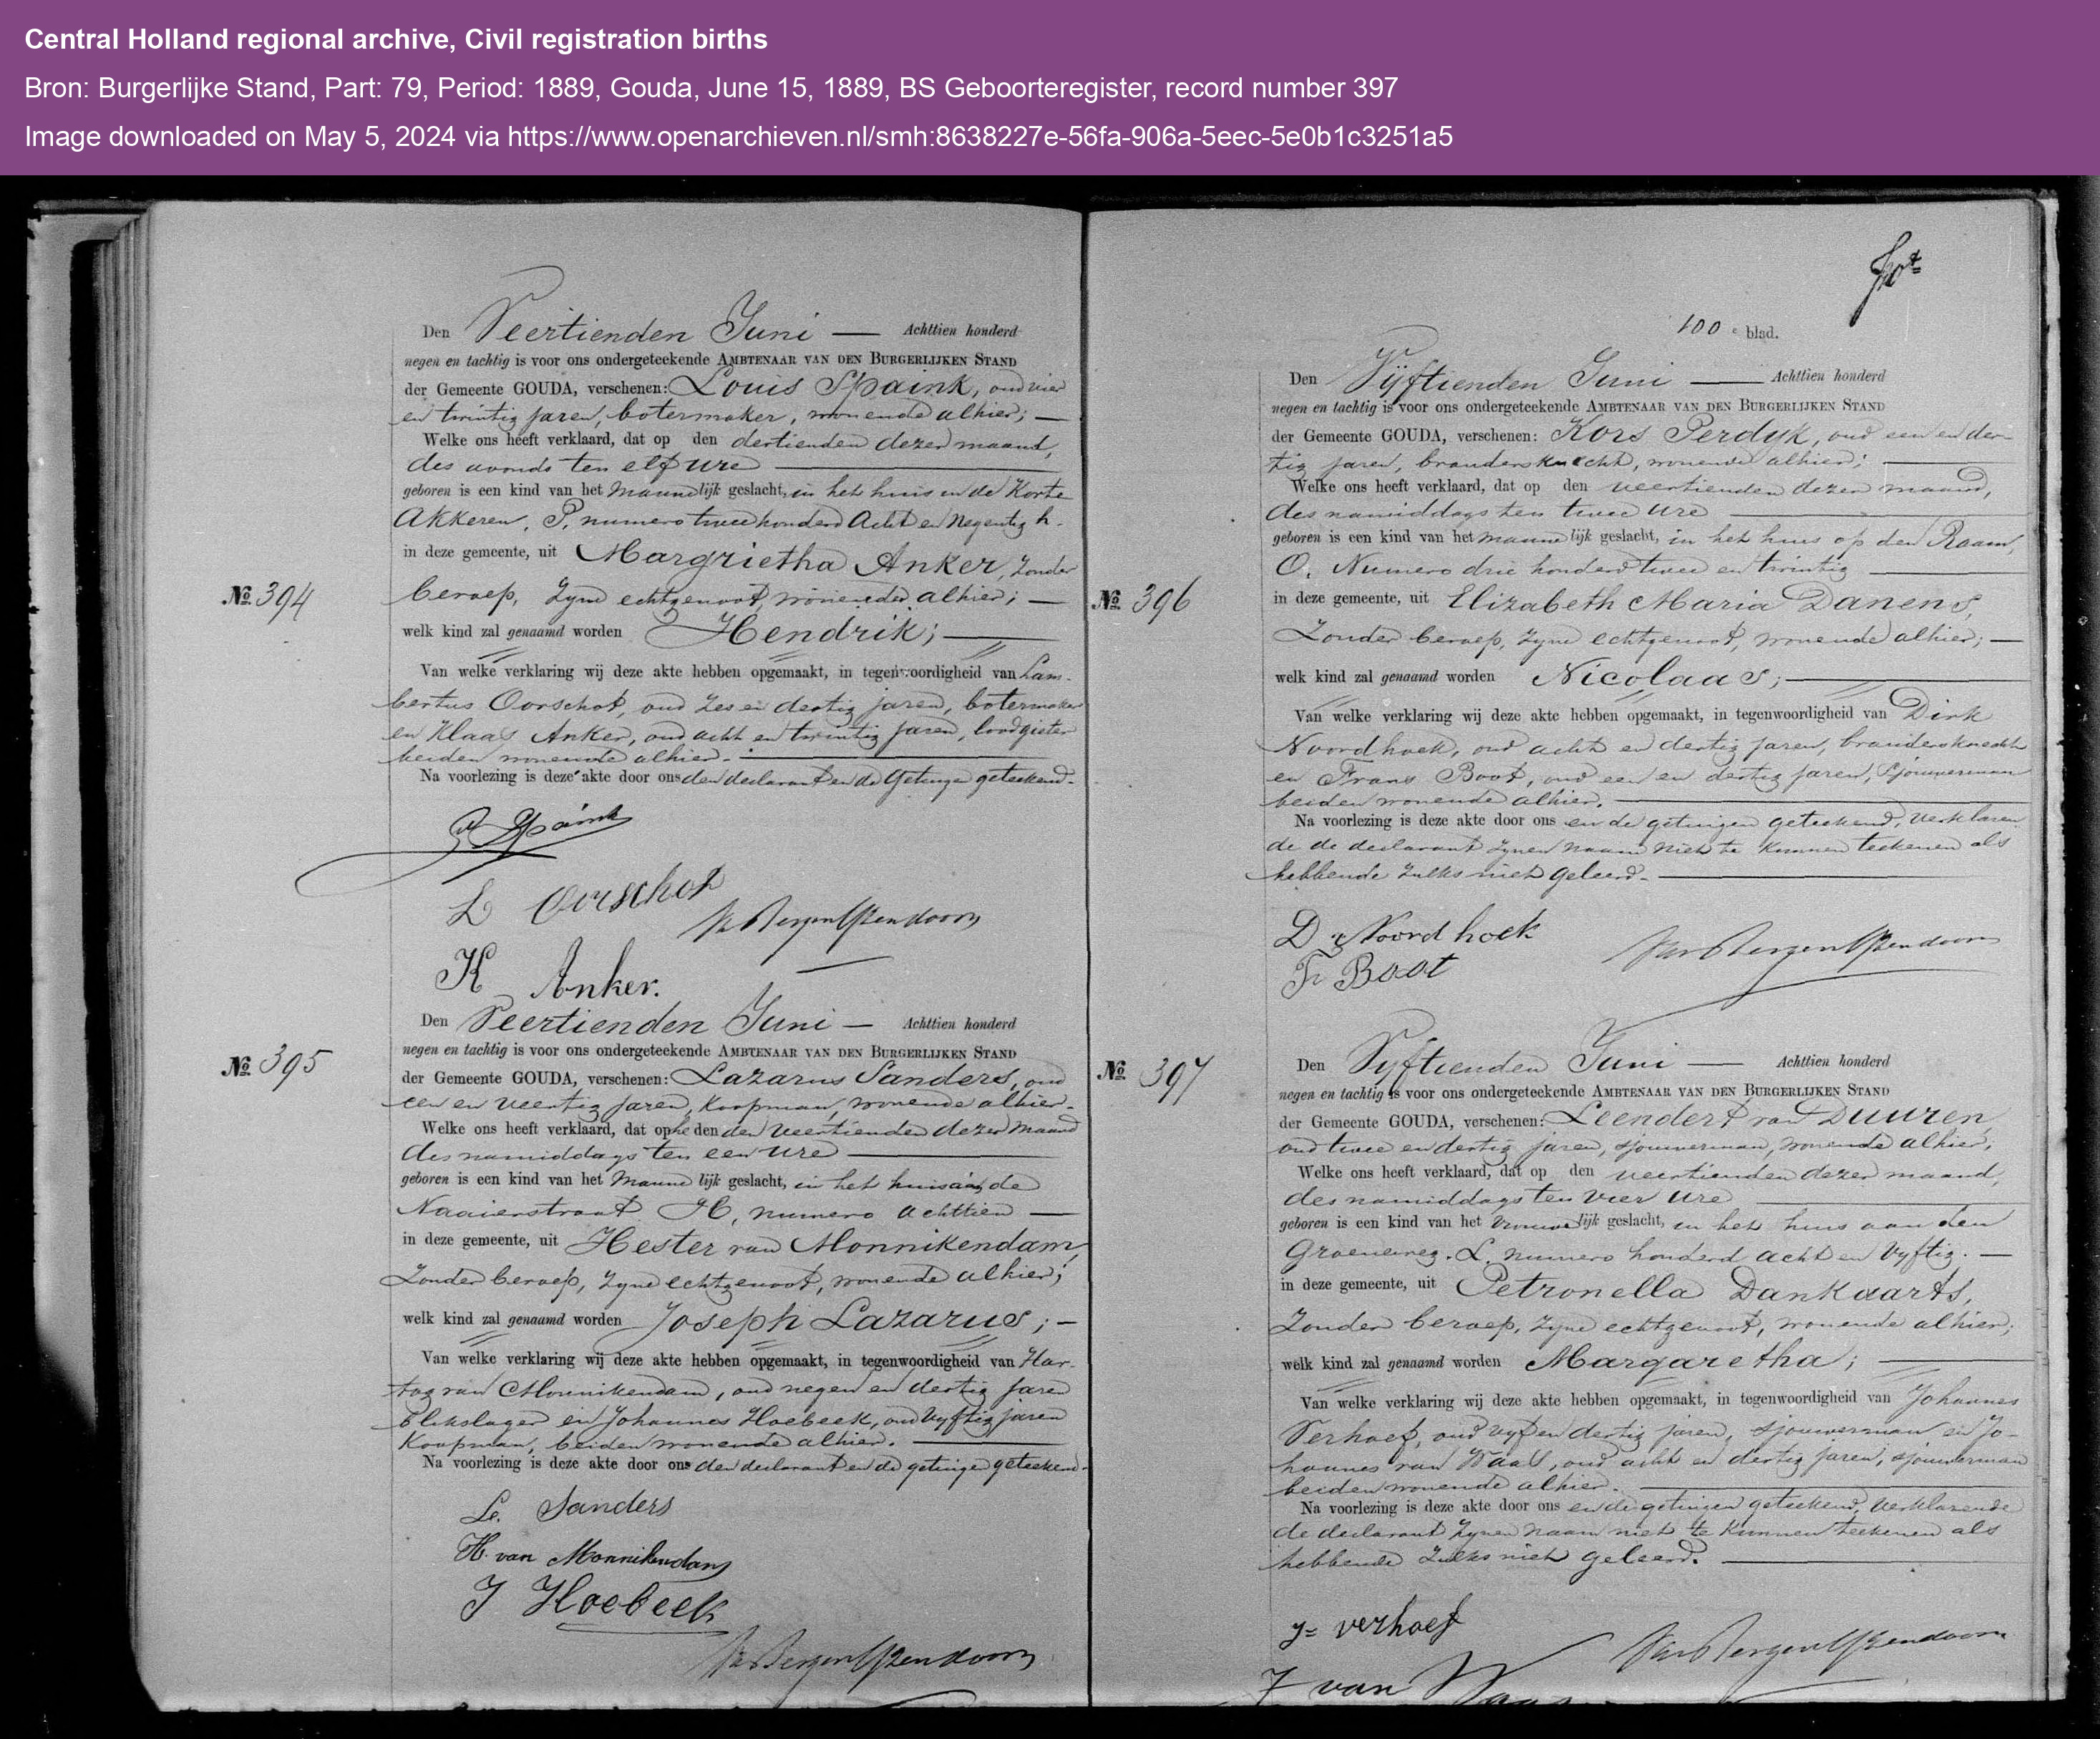 Central Holland regional archive, Civil registration births
Bron: Burgerlijke Stand, Part: 79, Period: 1889, Gouda, June 15, 1889, BS Geboorteregister, record number 397
Image downloaded on May 5, 2024 via https://www.openarchieven.nl/smh:8638227e-56fa-906a-5eec-5e0b1c3251a5
Den Veertienden Juni — Achttien honderd
negen en tachtig is voor ons ondergeteekende AMBTENAAR VAN DEN BURGERLIJKEN STAND
der Gemeente GOUDA, verschenen: Louis Spaink, oud vier
en twintig jaren, botermaker, wonende alhier; —
Welke ons heeft verklaard, dat op den dertienden dezer maand,
des avonds ten elf ure
geboren is een kind van het Mannelijk geslacht, in het huis in de Korte
Akkeren, P, numero twee honderd Acht en Negentig h.
in deze gemeente, uit Margrietha Anker, Zonder
№ 394
beroep, Zyne echtgenoot, wonende alhier; —
welk kind zal genaamd worden Hendrik;
Van welke verklaring wij deze akte hebben opgemaakt, in tegenwoordigheid van Lam-
bertus Oorschot, oud Zes en dertig jaren, botermaker
en Klaas Anker, oud acht en twintig jaren, loodgieter
beiden wonende alhier.
Na voorlezing is deze akte door ons den declarant en de Getuigen geteekend.
Spaink
L Oorschot
K Anker.
Den Veertienden Juni — Achttien honderd
negen en tachtig is voor ons ondergeteekende AMBTENAAR VAN DEN BURGERLIJKEN STAND
№ 395
der Gemeente GOUDA, verschenen: Lazarus Sanders, oud
een en veertig jaren, Koopman, wonende alhier.
Welke ons heeft verklaard, dat op den den veertienden dezer maand
des namiddags ten een ure
geboren is een kind van het Mannelijk geslacht, in het huis in de
Naaierstraat H, numero achttien —
in deze gemeente, uit Hester van Monnikendam,
Zonder beroep, Zyne echtgenoot, wonende alhier;
welk kind zal genaamd worden Joseph Lazarus; —
Van welke verklaring wij deze akte hebben opgemaakt, in tegenwoordigheid van Har-
tog van Monnikendam, oud negen en dertig jaren
blikslager en Johannes Hoebeek, oud Vyftig jaren
Koopman, beiden wonende alhier.
Na voorlezing is deze akte door ons den declarant en de getuigen geteekend.
Le. Sanders
H. van Monnikendam
J Hoebeek
100 e blad.
Den Vyftienden Juni — Achttien honderd
negen en tachtig is voor ons ondergeteekende AMBTENAAR VAN DEN BURGERLIJKEN STAND
der Gemeente GOUDA, verschenen: Kors Perdyk, oud een en der-
tig jaren, brandersknecht, wonende alhier;
Welke ons heeft verklaard, dat op den veertienden dezer maand,
des namiddags ten twee ure
geboren is een kind van het Mannelijk geslacht, in het huis op den Raam,
O. Numero drie honderd twee en twintig
№ 396
in deze gemeente, uit Elizabeth Maria Danens,
Zonder beroep, Zyne echtgenoot, wonende alhier; —
welk kind zal genaamd worden Nicolaas;
Van welke verklaring wij deze akte hebben opgemaakt, in tegenwoordigheid van Dirk
Noordhoek, oud acht en dertig jaren, brandersknecht
en Frans Boot, oud een en dertig jaren, Sjouwerman
beiden wonende alhier.
Na voorlezing is deze akte door ons en de getuigen geteekend, Verklaren
de de declarant Zynen Naam Niet te Kunnen teekenen als
hebbende Zulks niet geleerd.
D Noordhoek
Fr Boot
Den Vyftienden Juni — Achttien honderd
№ 397
negen en tachtig is voor ons ondergeteekende AMBTENAAR VAN DEN BURGERLIJKEN STAND
der Gemeente GOUDA, verschenen: Leendert van Duuren,
oud twee en dertig jaren, sjouwerman, wonende alhier,
Welke ons heeft verklaard, dat op den veertienden dezer maand,
des namiddags ten vier ure
geboren is een kind van het Vrouwelijk geslacht, in het huis aan den
Groeneweg. L. numero honderd acht en Vyftig. —
in deze gemeente, uit Petronella Dankaarts,
Zonder beroep, Zyne echtgenoot, wonende alhier;
welk kind zal genaamd worden Margaretha;
Van welke verklaring wij deze akte hebben opgemaakt, in tegenwoordigheid van Johannes
Verhoef, oud vyf en dertig jaren, sjouwerman en Jo-
hannes van Waas, oud acht en dertig jaren, sjouwerman
beiden wonende alhier.
Na voorlezing is deze akte door ons en de getuigen geteekend, Verklarende
de declarant Zynen Naam niet te Kunnen teekenen als
hebbende Zulks niet geleerd.
J= verhoef
J van Waas